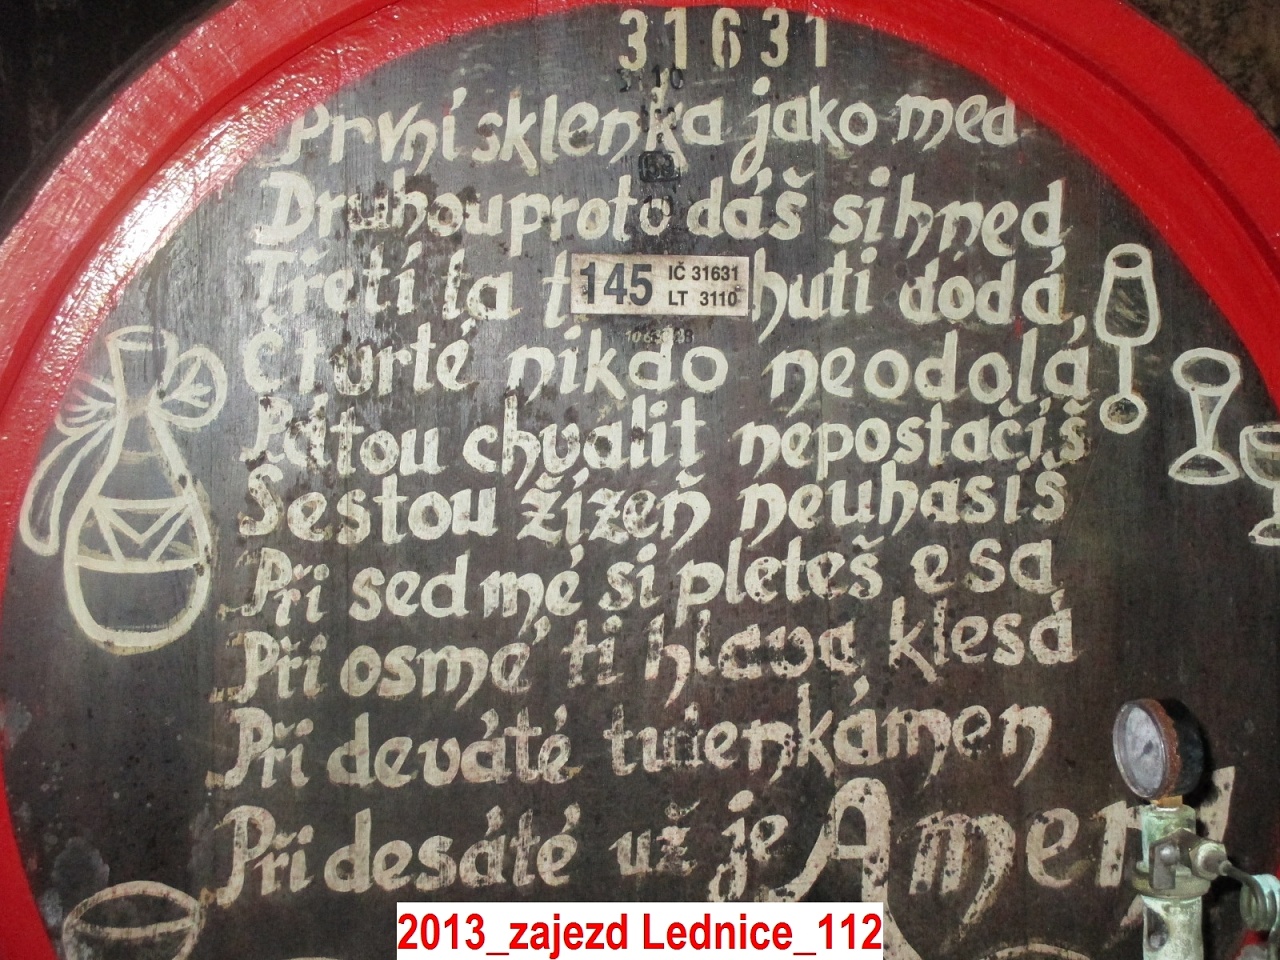 31631
3110
První sklenka jako med
152
Druhou proto dáš si hned
Třetí ta chuti dodá,
145 IČ 31631
LT 3110
Čtvrté nikdo neodolá
Pátou chválit nepostačíš
Šestou žízeň neuhasíš
Při sedmé si pleteš esa
Při osmé ti hlava klesá
Při deváté tutenkámen
Při desáté už je Amen
2013_zajezd Lednice_112